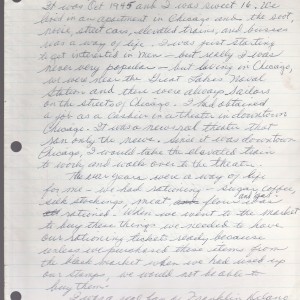 It was Oct 1945 and I was sweet 16. We
lived in an apartment in Chicago amid the soot,
noise, street cars, elevated trains, and busses
was a way of life. I was just starting
to get interested in men - but really I was
never very popular - but being in Chicago,
we were near the Great Lakes Naval
Station and there were always sailors
on the streets of Chicago. I had obtained
a job as a cashier in a theater in downtown
Chicago. It was a newsreel theater that
ran only the news. Since it was downtown
Chicago, I would take the elevated train
to work and walk over to the theater.
The war years were a way of life
for me - we had rationing - sugar, coffee,
silk stockings, meat, flour and gas
rationed. When we went to the market
to buy these things we needed to have
our rationing tickets ready because
unless we purchased these items from
the black market when we had used up
our stamps, we would not be able to
buy them.